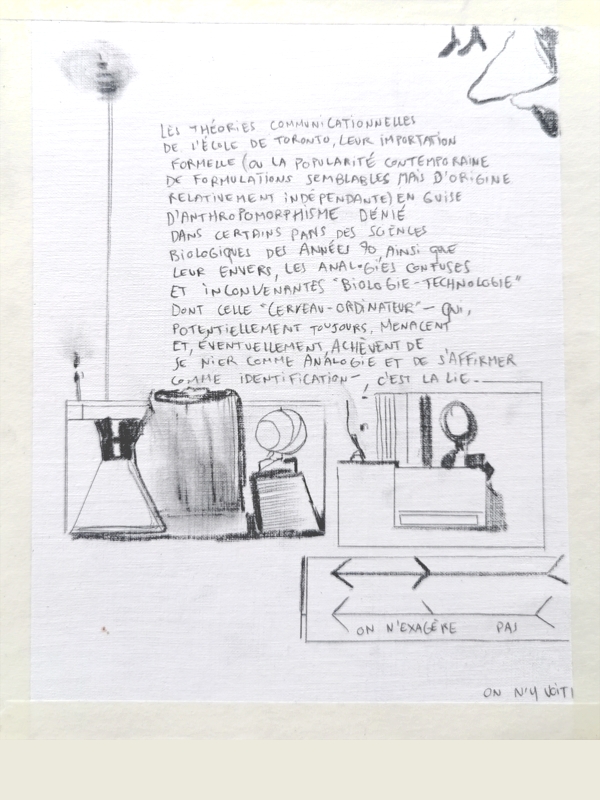 LES THÉORIES COMMUNICATIONNELLES
DE L'ÉCOLE DE TORONTO, LEUR IMPORTATION
FORMELLE (OU LA POPULARITÉ CONTEMPORAINE
DE FORMULATIONS SEMBLABLES MAIS D'ORIGINE
RELATIVEMENT INDÉPENDANTE) EN GUISE
D'ANTHROPOMORPHISME DÉNIÉ
DANS CERTAINS PANS DES SCIENCES
BIOLOGIQUES DES ANNÉES 90, AINSI QUE
LEUR ENVERS, LES ANALOGIES CONFUSES
ET INCONVENANTES "BIOLOGIE-TECHNOLOGIE"
DONT CELLE "CERVEAU-ORDINATEUR" — QUI,
POTENTIELLEMENT TOUJOURS, MENACENT
ET, ÉVENTUELLEMENT, ACHÈVENT DE
SE NIER COMME ANALOGIE ET DE S'AFFIRMER
COMME IDENTIFICATION —, C'EST LA LIE.
ON N'EXAGÈRE PAS
ON N'Y VOIT